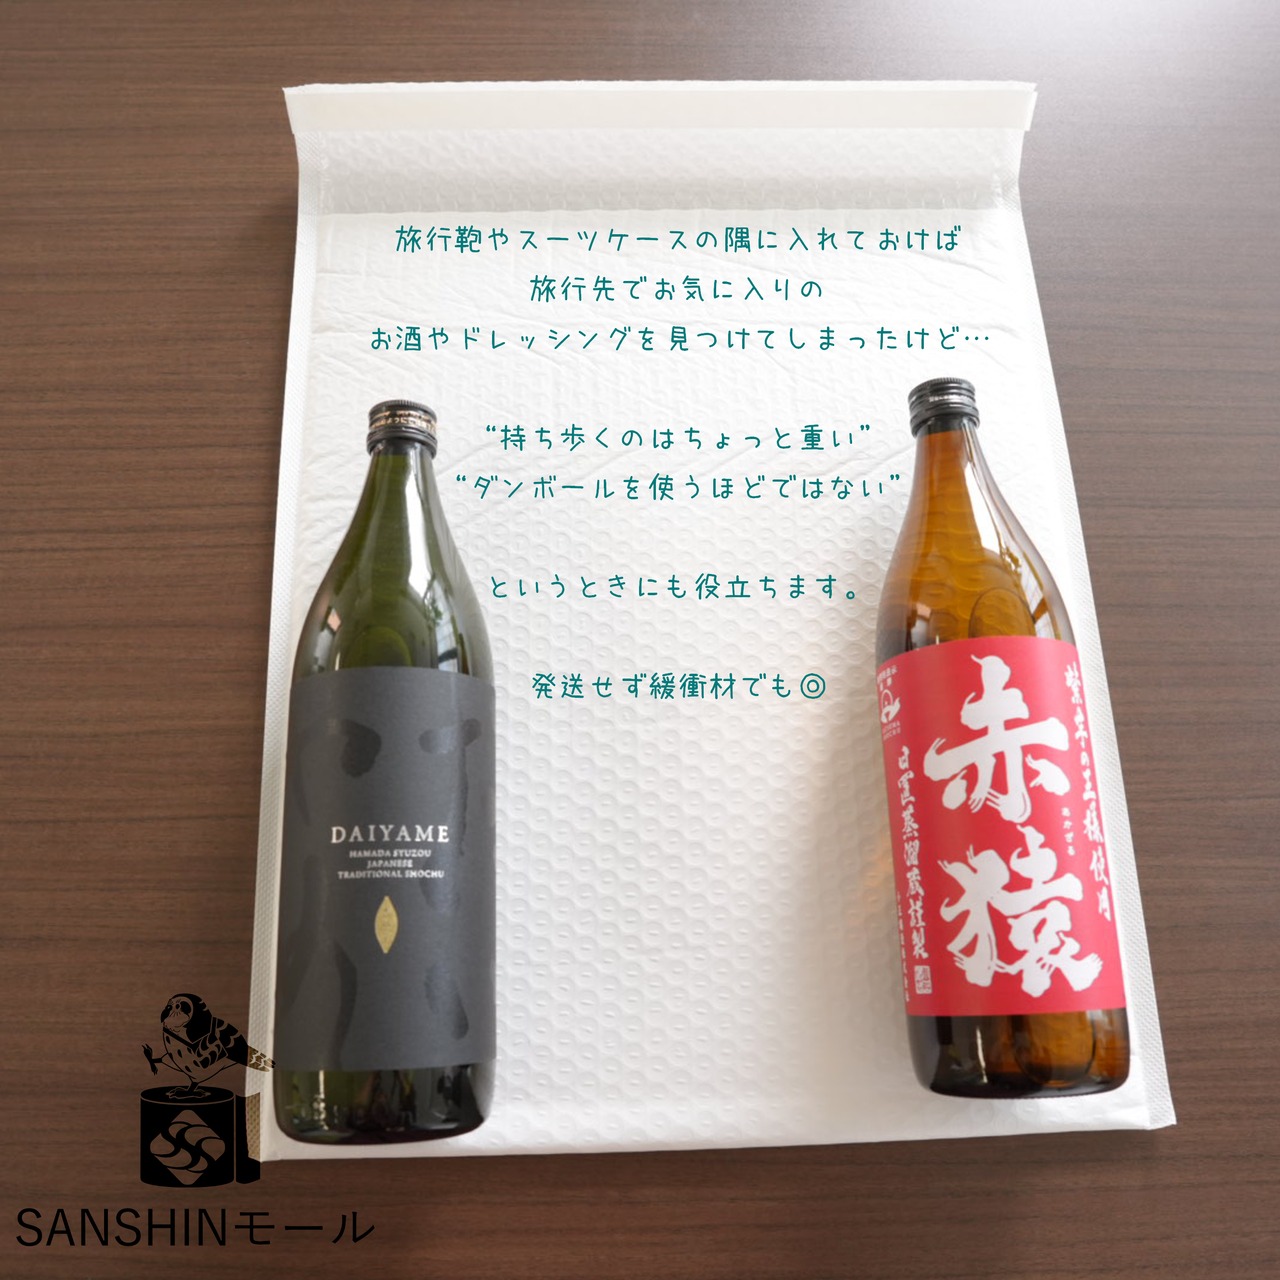 旅行鞄やスーツケースの隅に入れておけば
旅行先でお気に入りの
お酒やドレッシングを見つけてしまったけど…
“持ち歩くのはちょっと重い”
“ダンボールを使うほどではない”
というときにも役立ちます。
発送せず緩衝材でも◎
DAIYAME
HAMADA SYUZOU
JAPANESE
TRADITIONAL SHOCHU
紫芋の王様使用
赤猿
あかざる
日置蒸溜蔵謹製
SANSHINモール